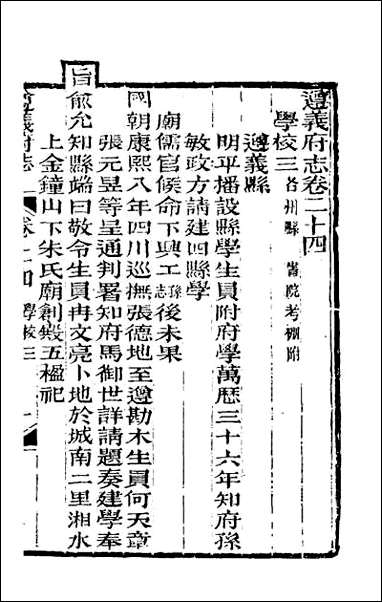 遵義府志卷二十四
學校三 各州縣 書院考棚附
遵義縣
明平播設縣學生員附府學萬歷三十六年知府孫
敏政方請建四縣學
廟儒官候命下興工孫志後未果
國朝康熙八年四川巡撫張德地至遵勘木生員何天章
張元昱等呈通判署知府馬御世詳請題奏建學奉
旨俞允知縣端曰敬令生員冉文亮卜地於城南二里湘水
上金鐘山下朱氏廟創殿五楹祀
遵義府志 卷二十四 學校三 一